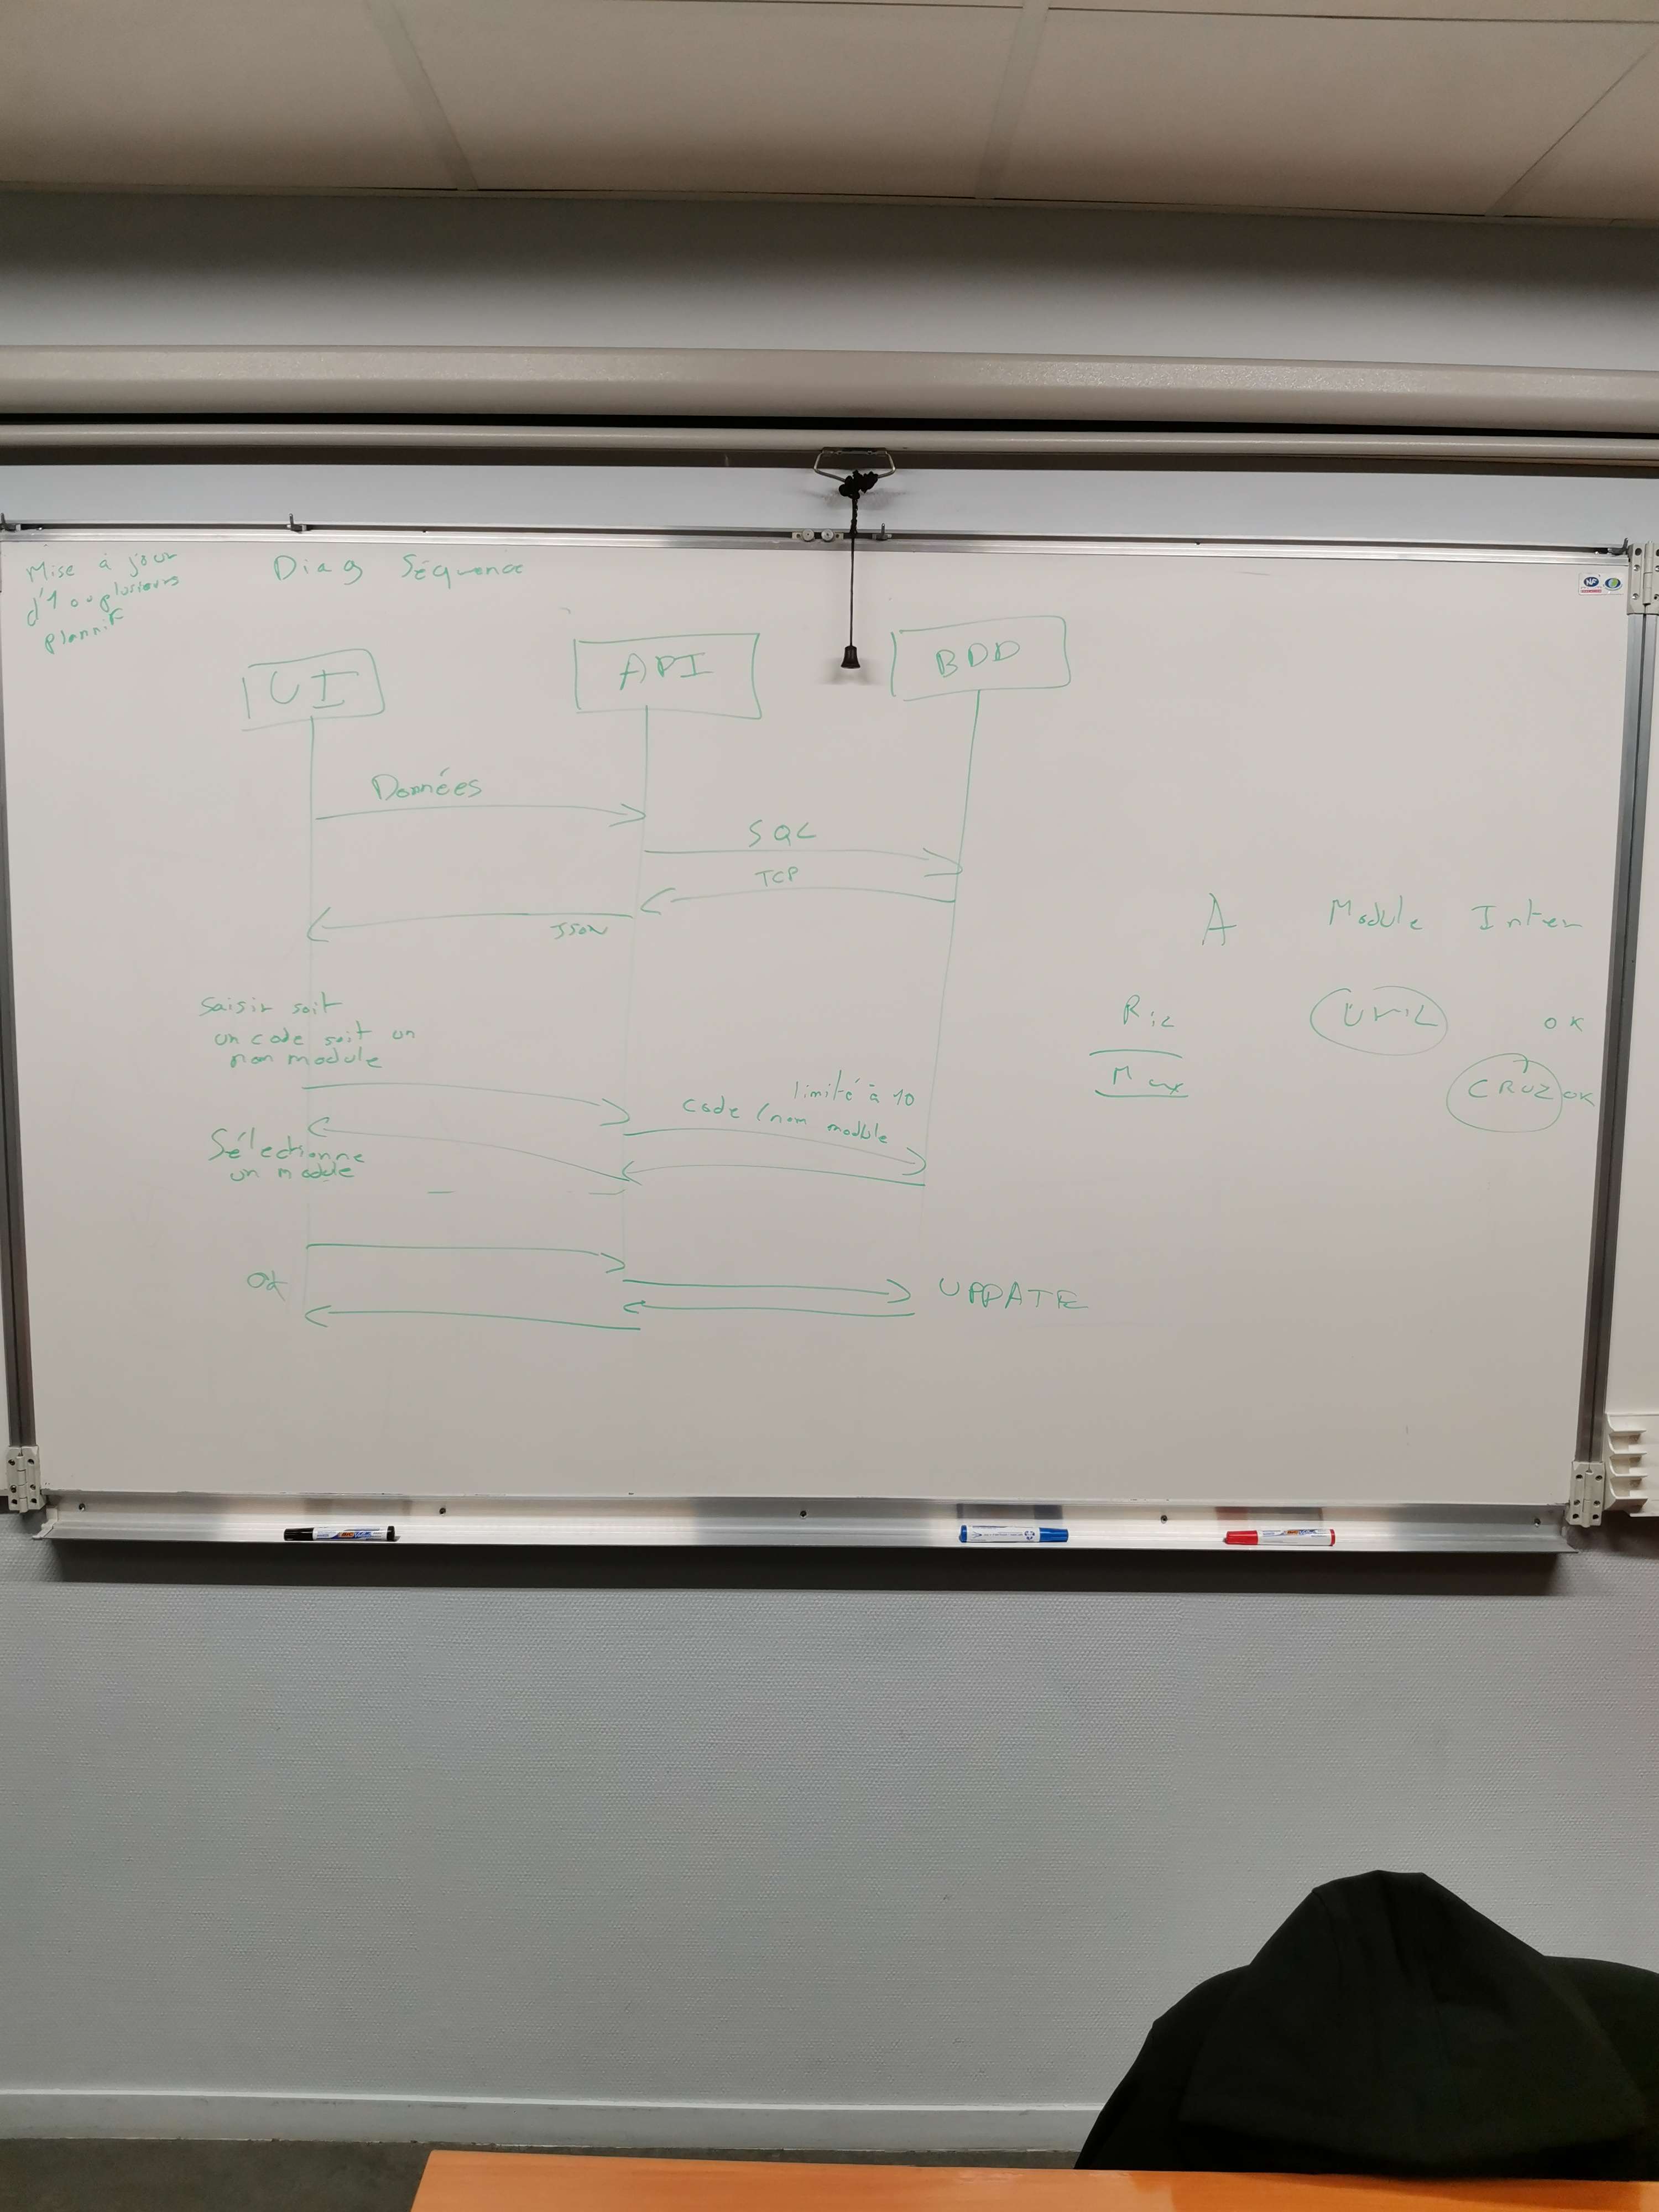 Mise à jour
d'1 ou plusieurs
plannif
Diag Séquence
UI
API
BDD
Données
SQL
TCP
JSON
Saisir soit
un code soit un
nom module
limité à 10
code / nom module
Sélectionne
un module
ok
UPDATE
A Module Inter
Ric
ok
Max
CRUZ ok